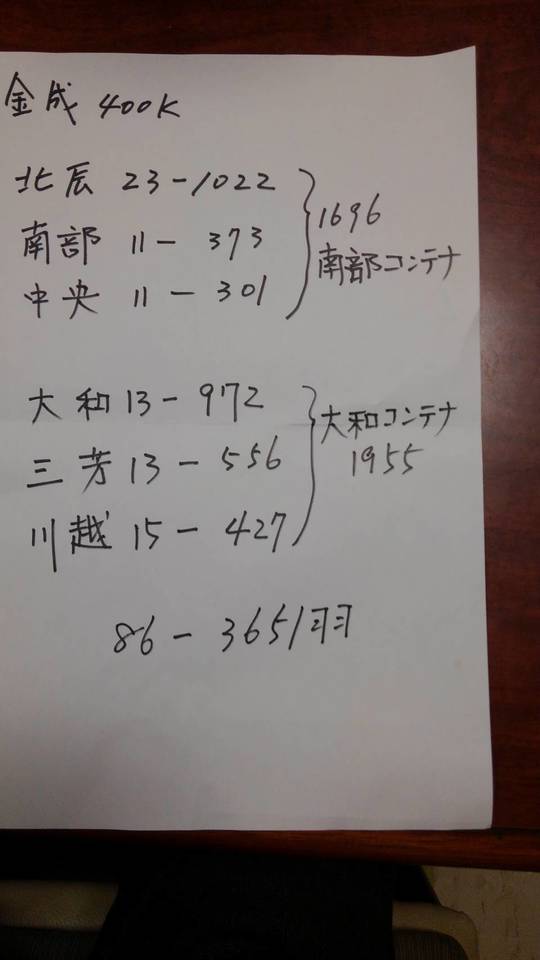 金成 400K
北辰 23-1022
南部 11- 373
中央 11-301
1696
南部コンテナ
大和 13-972
三芳 13-556
川越 15-427
大和コンテナ
1955
86-3651羽